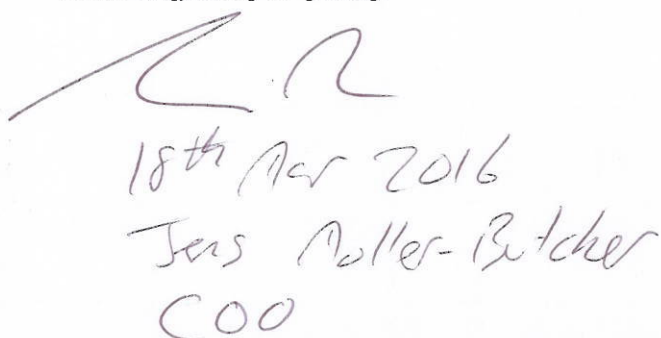 18th Mar 2016
Jens Moller-Butcher
COO